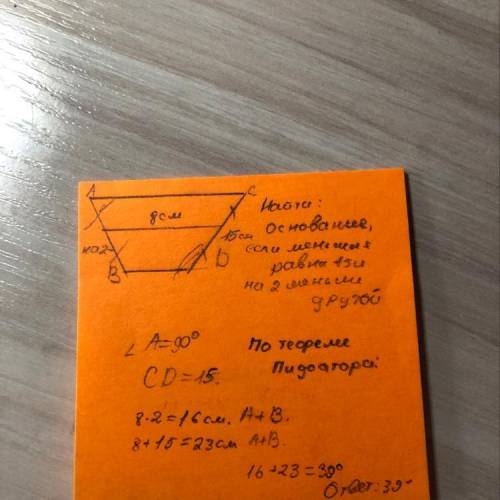 A
C
8см
на2
15см
B
D
Найти:
основание,
если меньшая
равна 15и
на 2 меньше
другой
∠ A=90°
По теореме
Пифагора:
CD=15.
8·2=16см. A+B.
8+15=23см A+B.
16+23=39°
Ответ:39